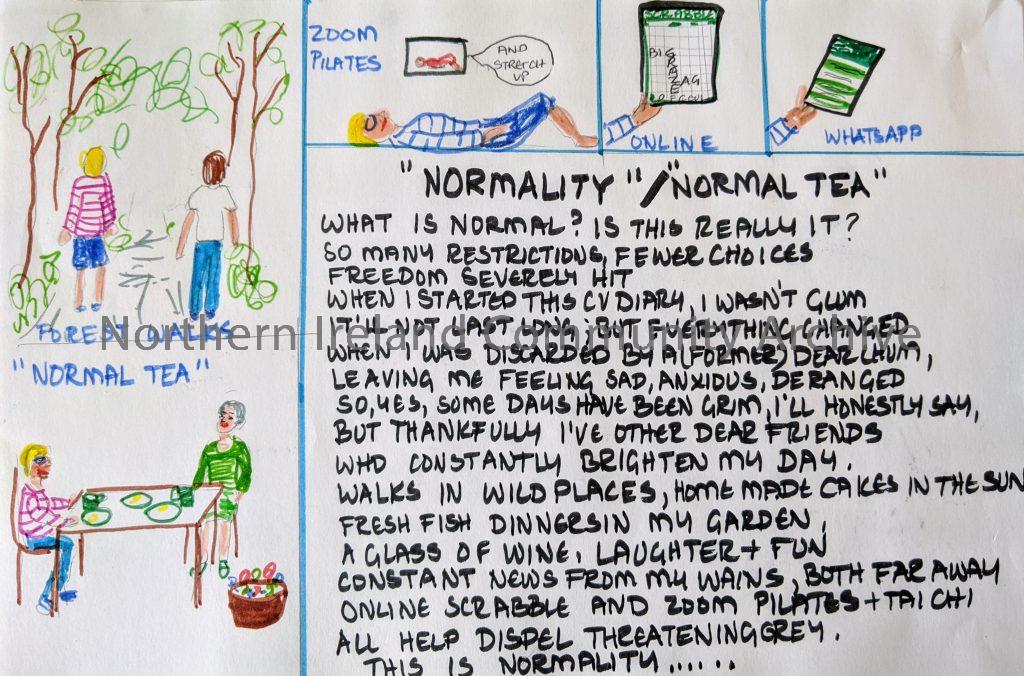 ZOOM
PILATES
AND
STRETCH
UP
SCRABBLE
ONLINE
WHATSAPP
FOREST WALKS
"NORMAL TEA"
"NORMALITY"/"NORMAL TEA"
WHAT IS NORMAL? IS THIS REALLY IT?
SO MANY RESTRICTIONS, FEWER CHOICES
FREEDOM SEVERELY HIT
WHEN I STARTED THIS CV DIARY, I WASN'T GLUM
IT'LL NOT LAST LONG, BUT EVERYTHING CHANGED
WHEN I WAS DISCARDED BY A (FORMER) DEAR CHUM,
LEAVING ME FEELING SAD, ANXIOUS, DERANGED
SO, YES, SOME DAYS HAVE BEEN GRIM, I'LL HONESTLY SAY,
BUT THANKFULLY I'VE OTHER DEAR FRIENDS
WHO CONSTANTLY BRIGHTEN MY DAY.
WALKS IN WILD PLACES, HOME MADE CAKES IN THE SUN
FRESH FISH DINNERS IN MY GARDEN,
A GLASS OF WINE, LAUGHTER + FUN
CONSTANT NEWS FROM MY WAINS, BOTH FAR AWAY
ONLINE SCRABBLE AND ZOOM PILATES + TAI CHI
ALL HELP DISPEL THREATENING GREY.
THIS IS NORMALITY......
Northern Ireland Community Archive